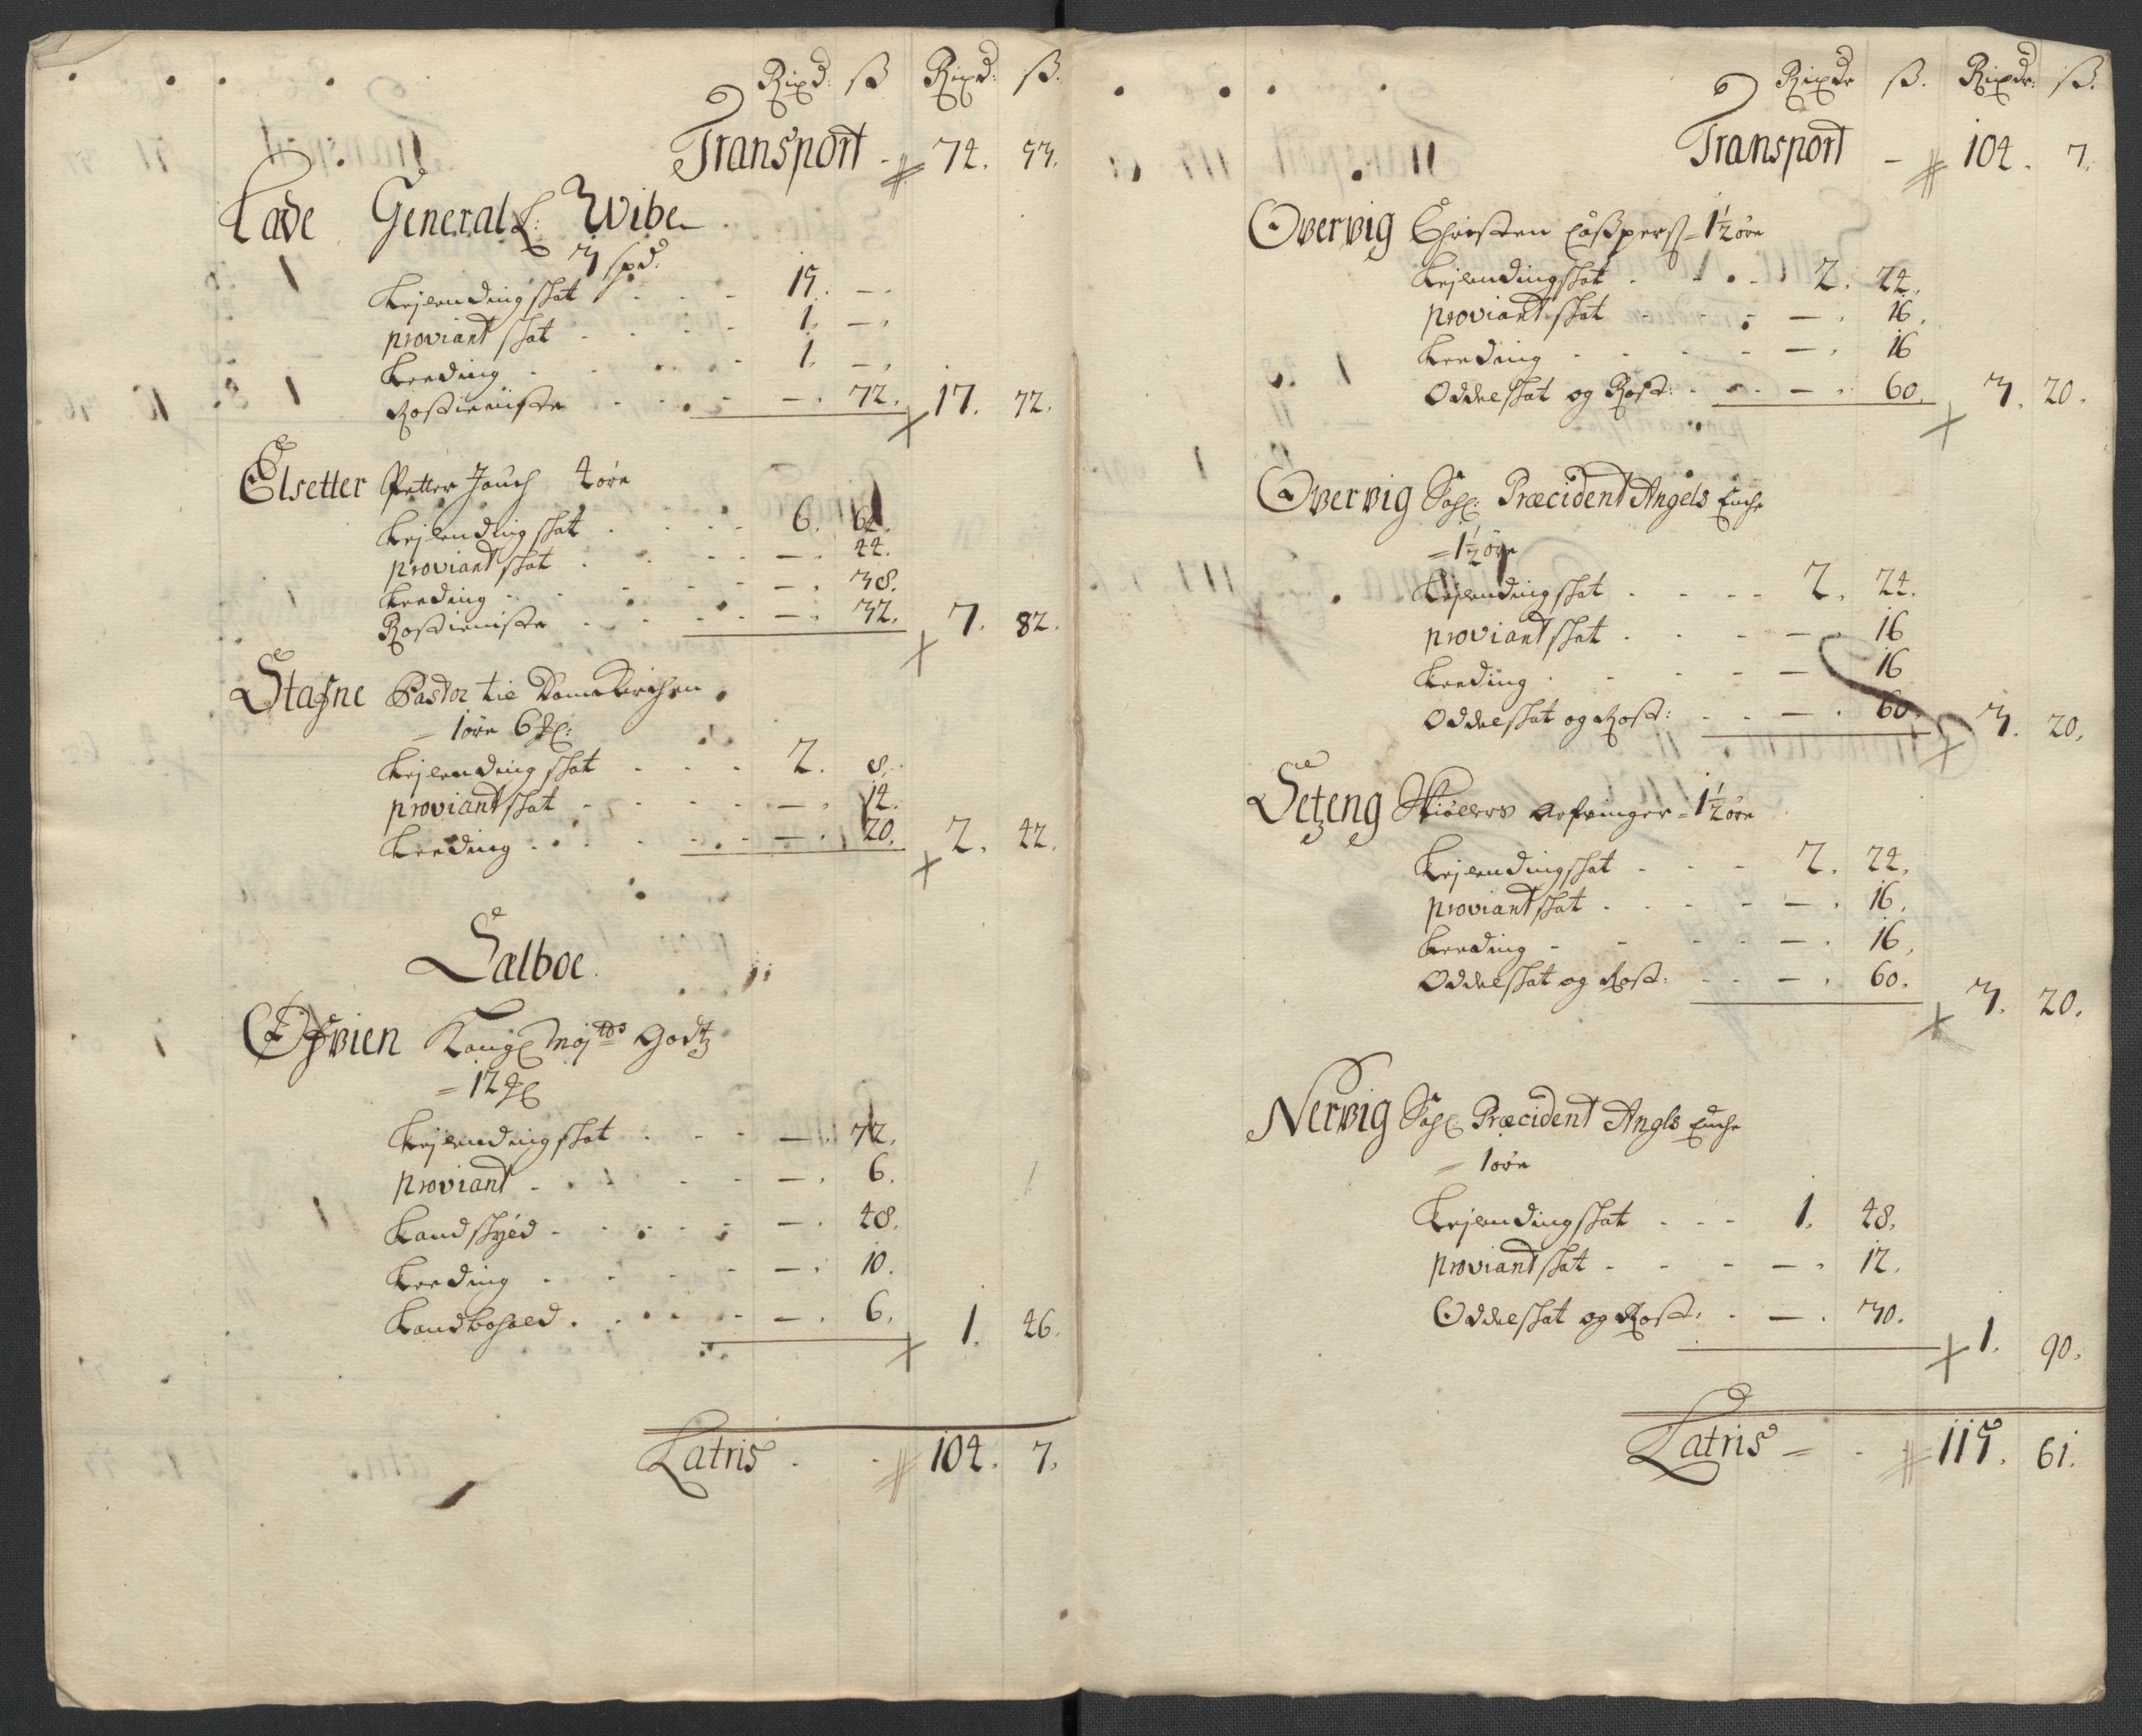 Rixd: ß Rixd: ß.
Transport - 74. 53.
Lade General L: Wibe
3 spd:
Leylending skat - - - 15. -.
proviant skat - - - 1. -.
Leeding - - - 1. -.
Rostieniste - - - -. 72. 17. 72.
Elsetter Petter Jauch 4 øre
Leylending skat - - - 6. 64.
proviant skat - - - -. 44.
Leeding - - - -. 38.
Rostieniste - - - -. 32. 7. 82.
Stafne Pastor til Domkirchen
= 1 øre 6 ₰:
Leylending skat - - - 2. 8.
proviant skat - - - -. 14.
Leeding - - - -. 20. 2. 42.
Sælboe.
Øfvien Kongl Maj:ts Godtz
= 12 ₰
Leylending skat - - - -. 72.
proviant - - - -. 6.
Landskyld - - - -. 48.
Leeding - - - -. 10.
Landbohold - - - -. 6. 1. 46.
Latris - - 104. 7.
Rixdr ß. Rixdr: ß.
Transport - 104. 7.
Overvig Christen Casperß = 1½ øre
Leylending skat - - - 2. 24.
proviant skat - - - -. 16.
Leeding - - - -. 16
Oddelskat og Rost: - - -. 60. 3. 20.
Overvig Sahl: Præcident Angels Enche
= 1½ øre
Leylending skat - - - 2. 24.
proviant skat - - - -. 16
Leeding - - - - 16
Oddelskat og Rost: - - -. 60. 3. 20.
Setzeng Skiølers Arfvinger = 1½ øre
Leylending skat - - - 2. 24.
proviant skat - - - -. 16.
Leeding - - - -. 16.
Oddelskat og Rost: - - -. 60. 3. 20.
Nervig Sahl: Præcident Angls Enche
= 1 øre
Leylending skat - - - 1. 48.
proviant skat - - - -. 12.
Oddelskat og Rost: - -. 30. 1. 90.
Latris = - 115. 61.